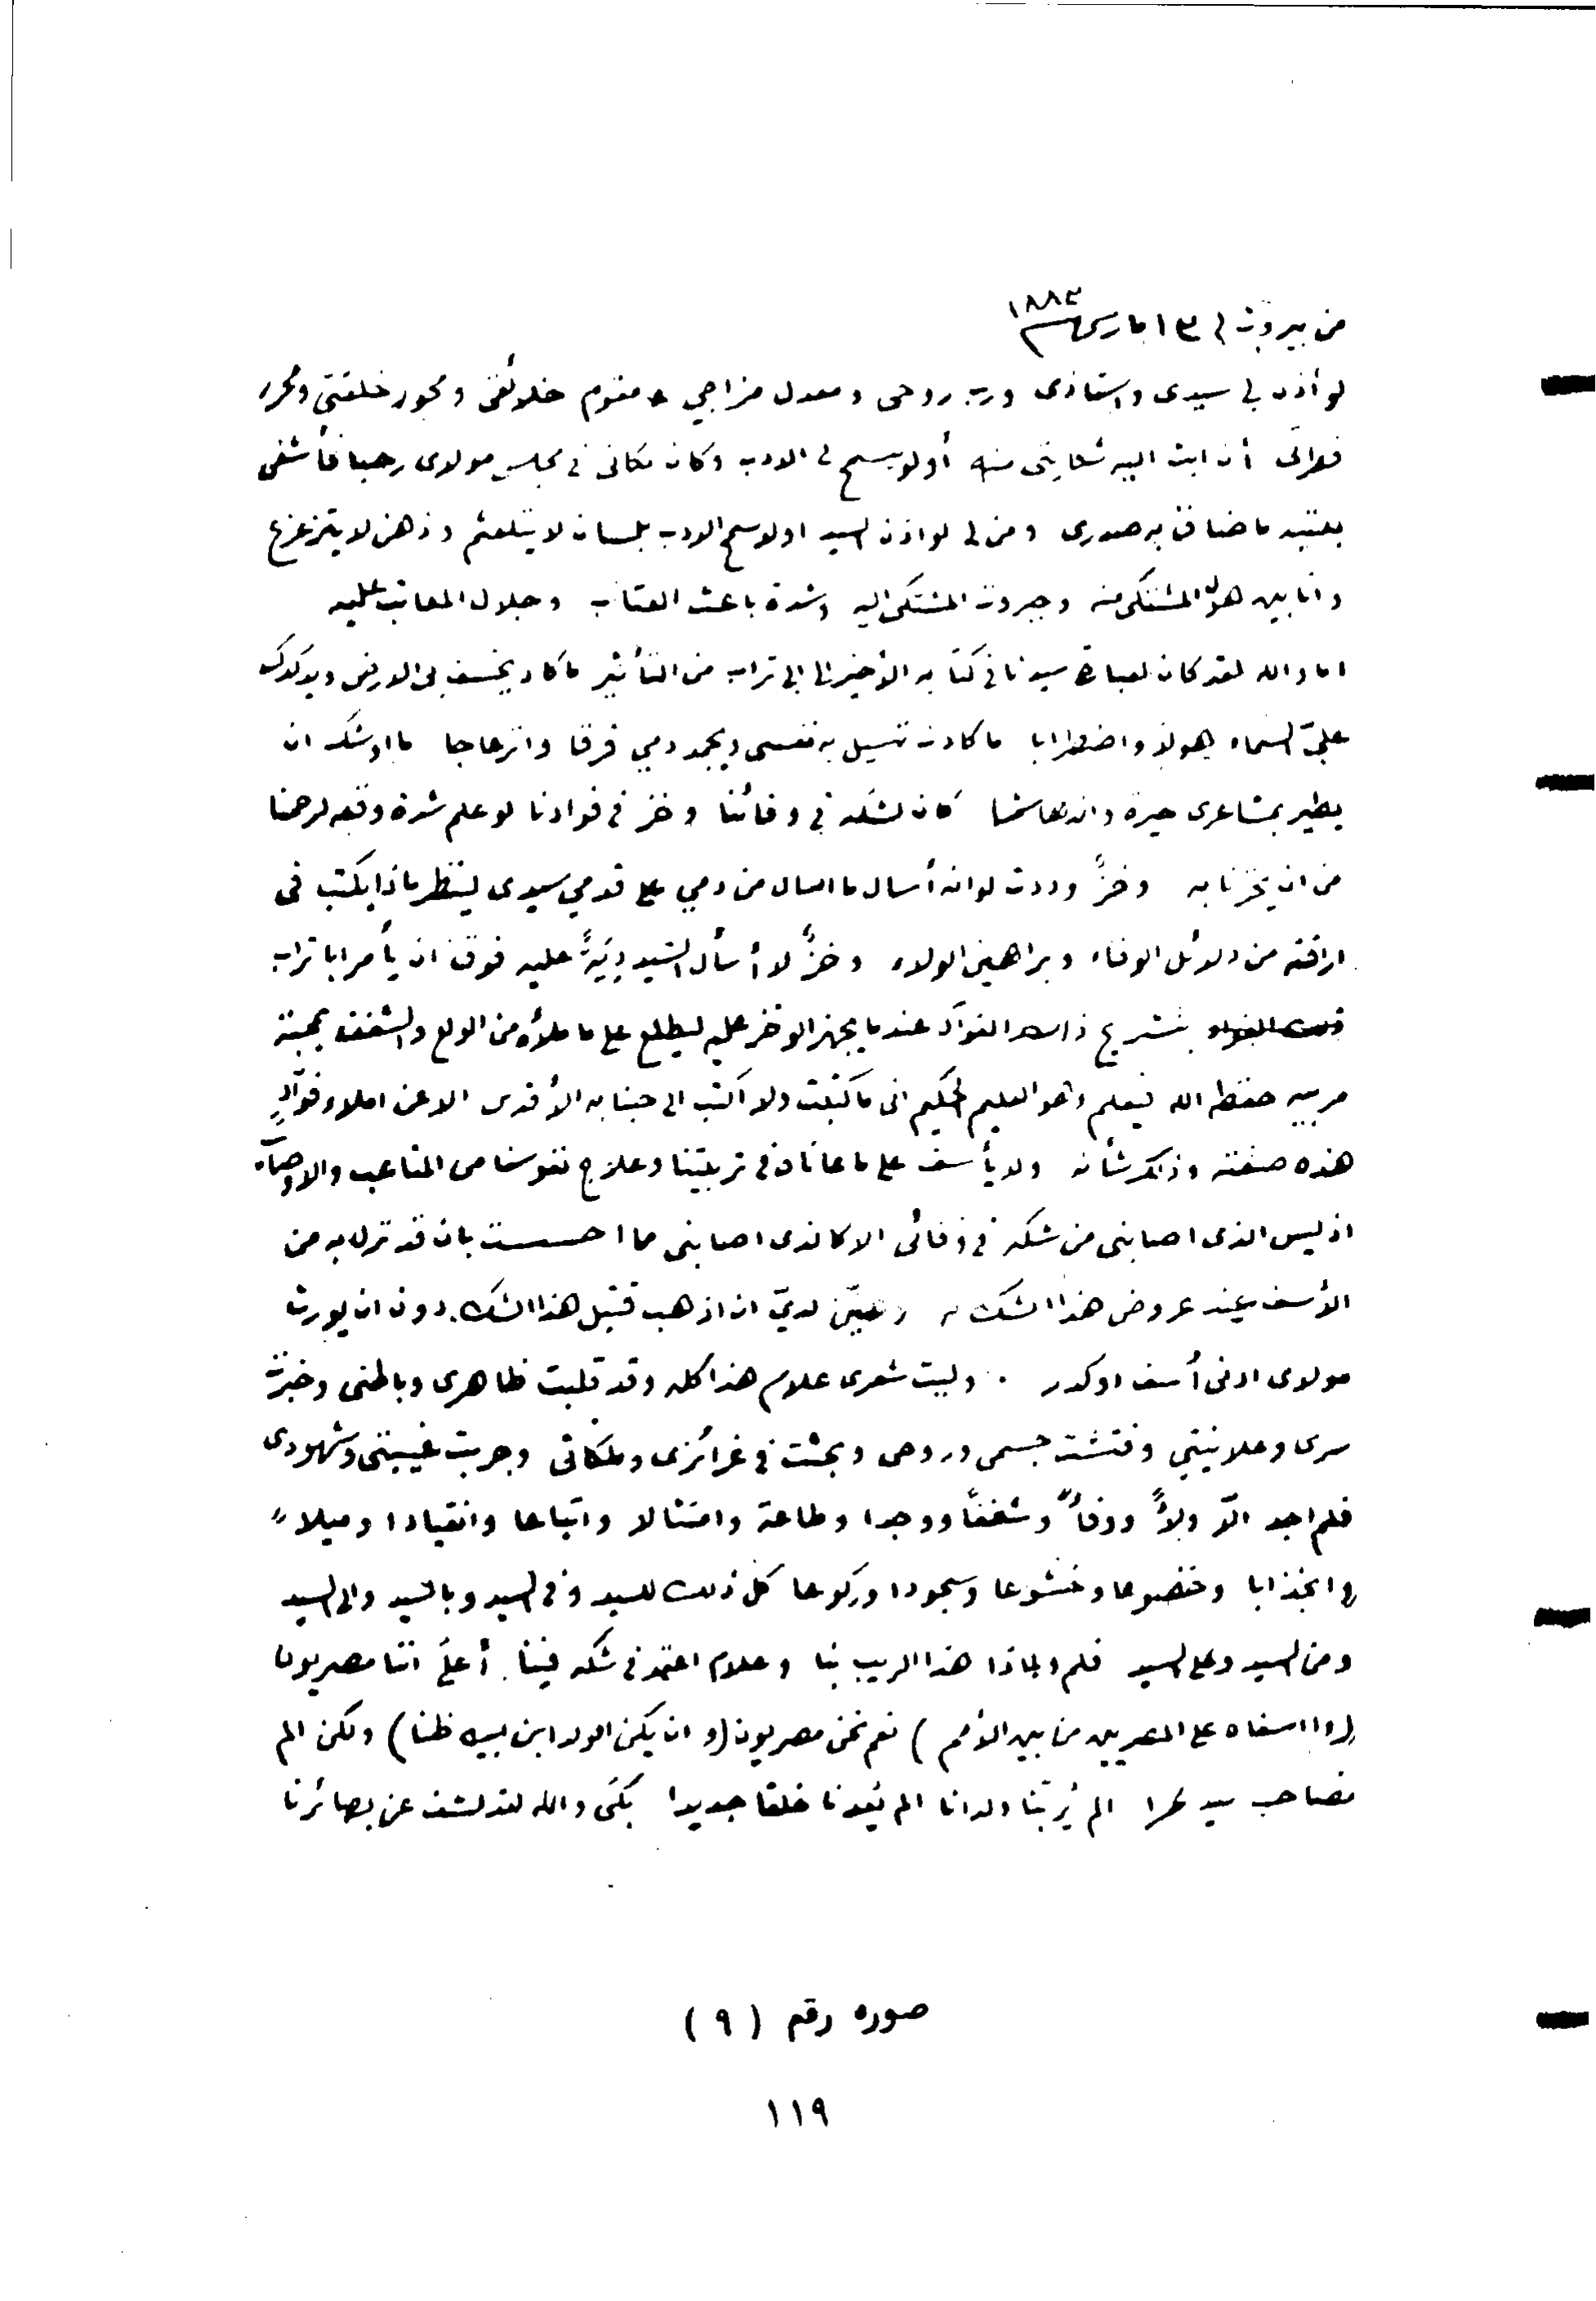 من بيروت في ١٣ مارس سنة ١٨٨٣
لو أذن لي سيدى واستاذى ورب روحى ومعدل مزاجي ومقوم خلائقى ومحور خلقتى ومحرر
أن ابث اليه شكايتى منه أو لو يسمح لى الادب وكان مكانى في مجلس مولاى رحبا فأشفى
ما ضاق به صدرى ومن لى لو اذن السيد او لو سمح الادب بلسان لا يتلعثم وذهن لا يتزعزع
وانا بين هول المشتكى منه وجبروت المشتكى اليه وشدة باعث العتاب وجلال المعاتب عليه
اما والله لقد كان لعبارة سيدنا في كتابه الأخير الى ابى تراب من التأثير ما كاد يخسف بى الارض ويدكدك
علىّ السماء هولا واضطرابا ما كادت تسيل به نفسى ويجمد دمي فرقا وانزعاجا ما اوشك ان
يطير بمشاعرى حيرة واندهاشا كان لشكه في وفائنا وخز في فوادنا لو علم شدة وقعه لرحمنا
من ان يخزنا به وخزً وددت لو انه أسال ما اسال من دمي على قدمي سيدى لينظر ماذا يكتب فى
اراقته من دلائل الوفاء وبراهين الولاء وخزً لا أسأل السيد دِيَةً عليه فوق ان يأمر ابا تراب
بتشريح ذلك الفوآد عندما يجهز الوخز عليه ليطلع على ما ملأه من الولع والشغف بمحبة
مربيه حفظه الله فيعلم وهو العليم الحكيم انى ما كتبت ولا اكتب الى جنابه الأقدس الا عن املاء فوآدٍ
هذه صفته وذلكم شأنه ولا يأسف على ما عاناه في تربيتنا وعلاج نفوسنا من المتاعب والاوصآب
اذ ليس الذى اصابنى من شكه في وفائى الا كالذى اصابنى مما احسست بان قد نزل به من
الأسف عند عروض هذا الشك له وهيّن لديّ ان اذهب قتيل هذا الشك دون ان يورث
مولاى ادنى أسف او كدر . وليت شعرى علام هذا كله وقد قلبت ظاهرى وباطنى وخبرت
سرى وعلانيتي وفتشت جسمى وروحى وبحثت في غرائزى وملكاتى وجربت غيبتى وشهودى
فلم اجد الّا ولآءً ووفآءً وشغفًا ووجدا وطاعة وامتثالا واتباعا وانقيادا وميلا
وانجذابا وخضوعا وخشوعا وسجودا وركوعا كل ذلك للسيد وفى السيد وبالسيد والى السيد
ومن السيد وعلى السيد فلم ولماذا هذا الريب بنا وعلام اعتمد في شكه فينا. أعلى اننا مصريون
(وا اسفاه على المصريين من بين الأمم) نعم نحن مصريون (وان يكن الولد ابن ابيه ظنا) ولكن الم
نصاحب سيد الم يُربّنا ولدانا الم يُعِدنا خلقا جديدا بلى والله لقد كشف عن بصائرنا
صوره رقم (٩)
١١٩